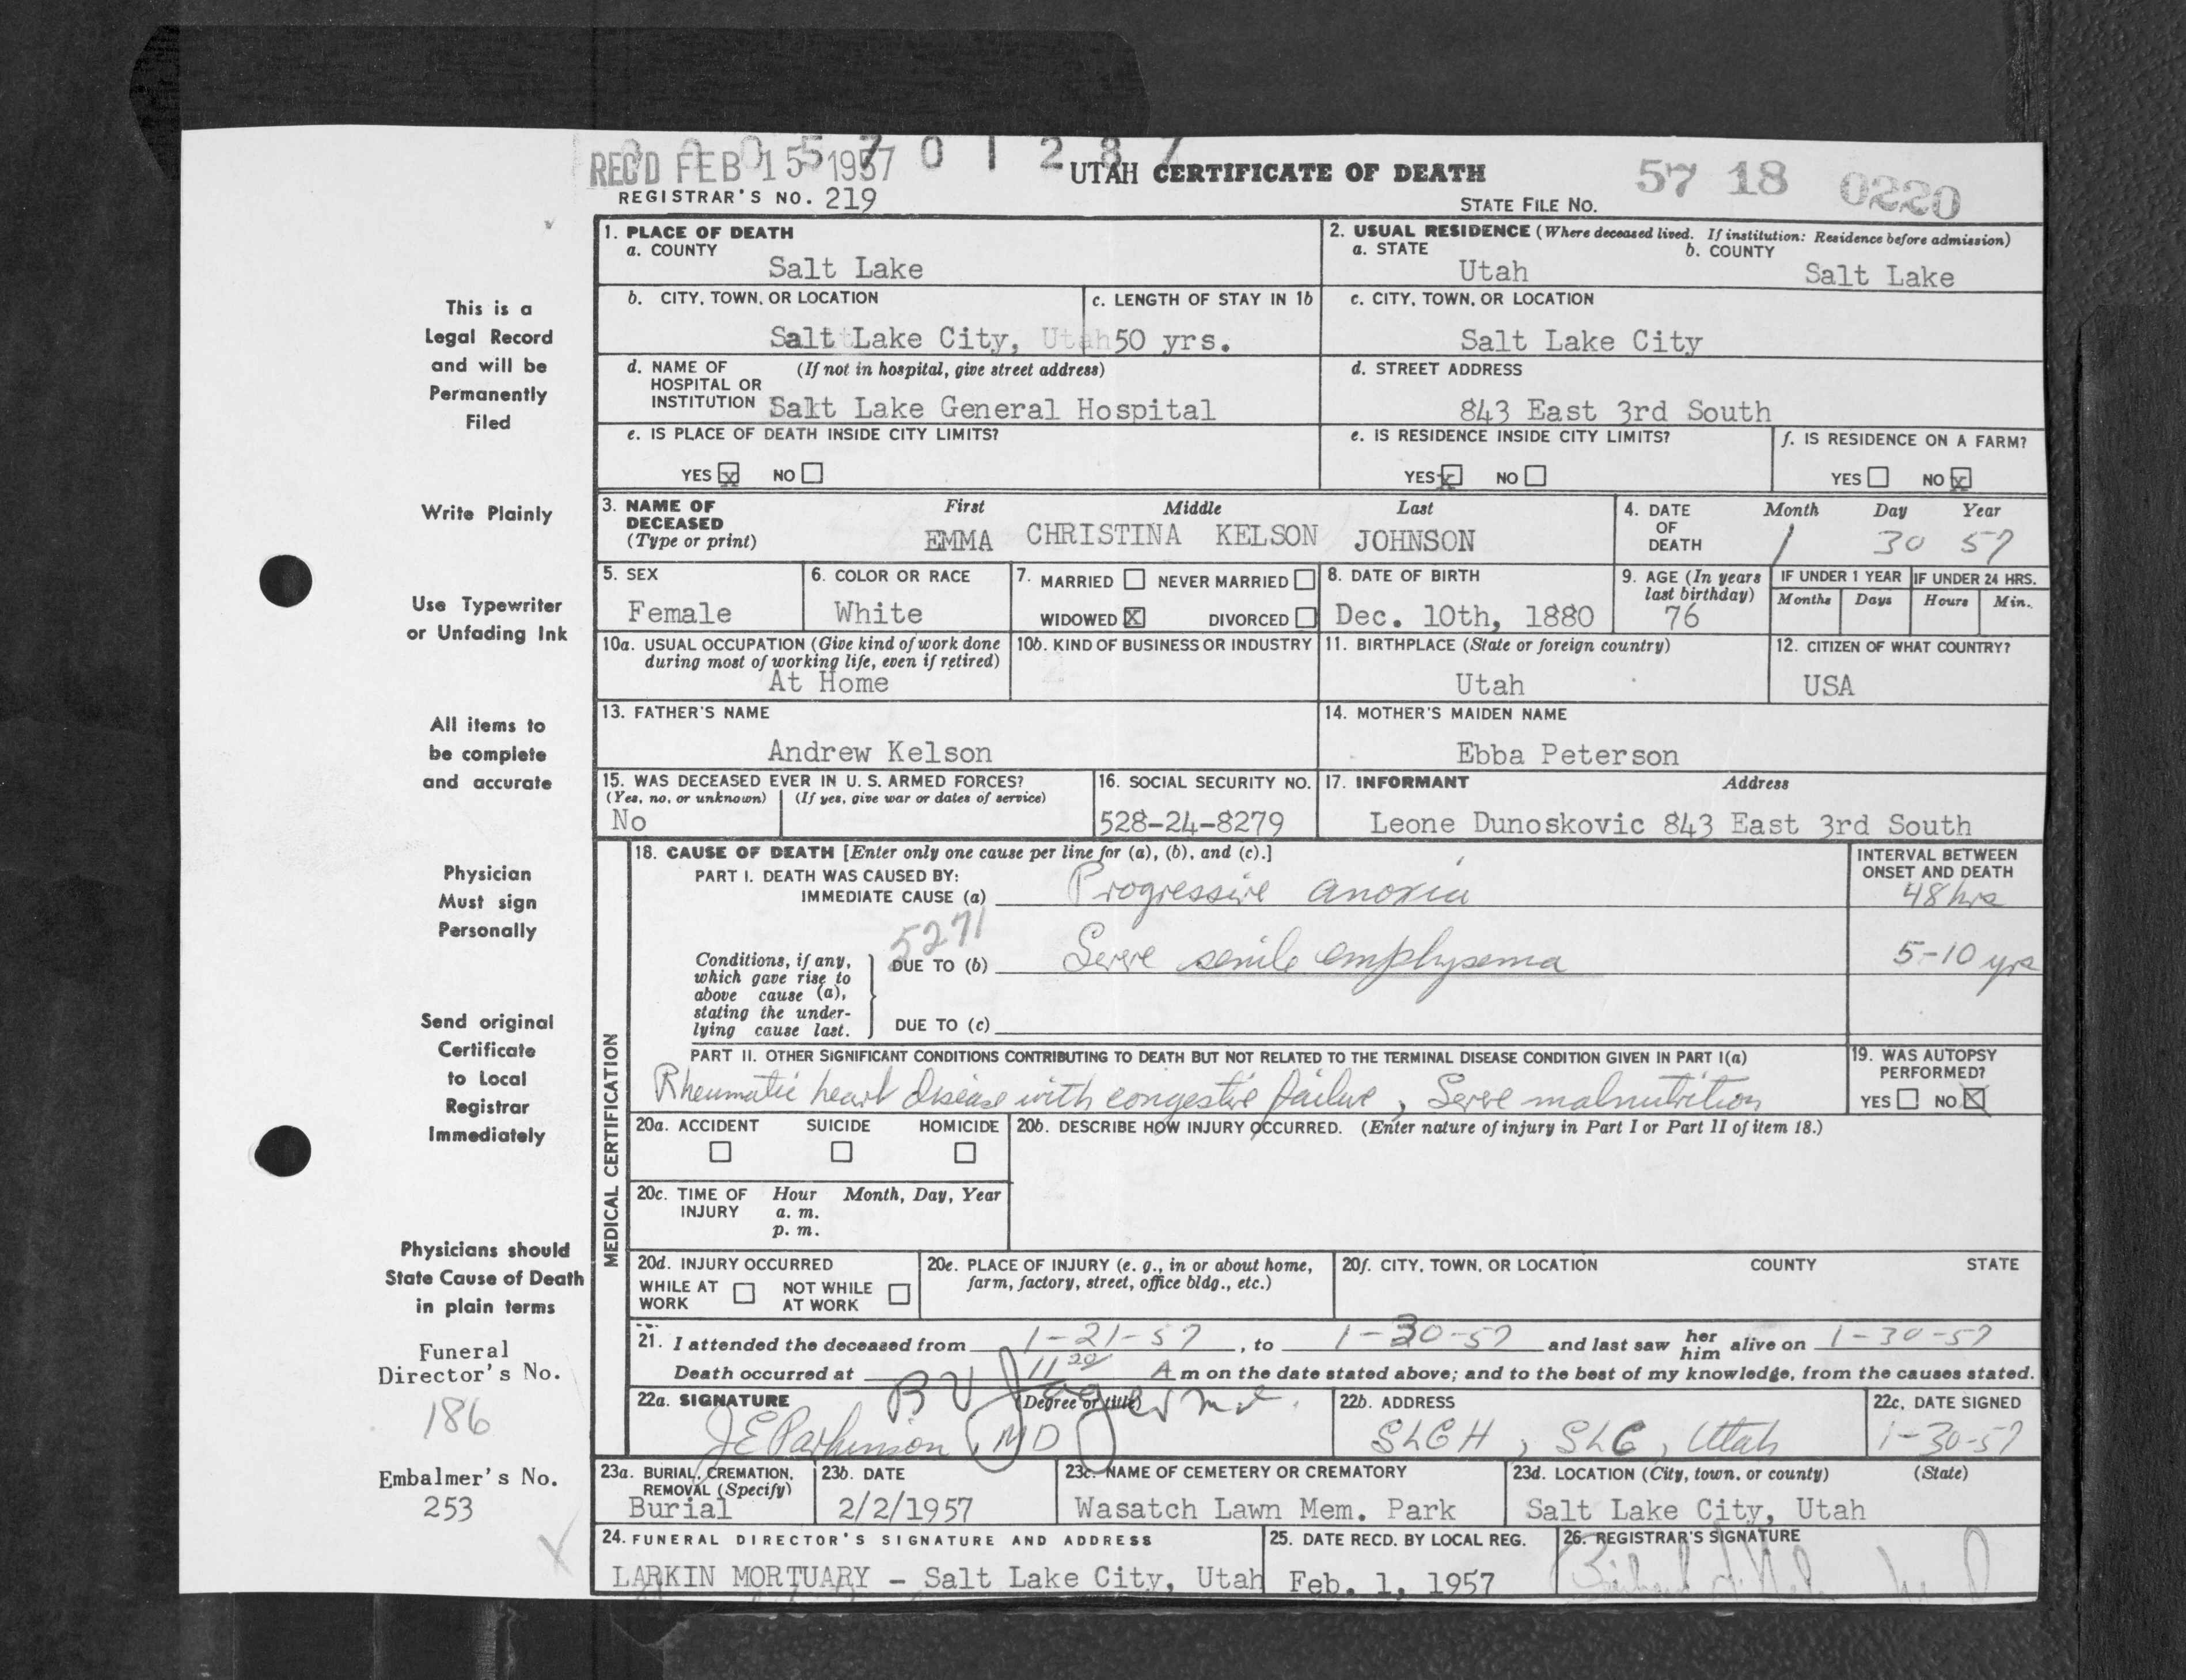 REC'D FEB 15 1957
0 1 2 8 7
UTAH CERTIFICATE OF DEATH
57 18 0220
REGISTRAR'S NO. 219
STATE FILE NO.
1. PLACE OF DEATH
a. COUNTY
Salt Lake
2. USUAL RESIDENCE (Where deceased lived. If institution: Residence before admission)
a. STATE
Utah
b. COUNTY
Salt Lake
b. CITY, TOWN, OR LOCATION
Salt Lake City, Utah
c. LENGTH OF STAY IN 1b
50 yrs.
c. CITY, TOWN, OR LOCATION
Salt Lake City
d. NAME OF HOSPITAL OR INSTITUTION
(If not in hospital, give street address)
Salt Lake General Hospital
d. STREET ADDRESS
843 East 3rd South
e. IS PLACE OF DEATH INSIDE CITY LIMITS?
YES x NO
e. IS RESIDENCE INSIDE CITY LIMITS?
YES x NO
f. IS RESIDENCE ON A FARM?
YES NO x
3. NAME OF DECEASED
(Type or print)
First Middle Last
EMMA CHRISTINA KELSON JOHNSON
4. DATE OF DEATH
Month Day Year
1 30 57
5. SEX
Female
6. COLOR OR RACE
White
7. MARRIED NEVER MARRIED
WIDOWED X DIVORCED
8. DATE OF BIRTH
Dec. 10th, 1880
9. AGE (In years last birthday)
76
IF UNDER 1 YEAR
Months Days
IF UNDER 24 HRS.
Hours Min.
10a. USUAL OCCUPATION (Give kind of work done during most of working life, even if retired)
At Home
10b. KIND OF BUSINESS OR INDUSTRY
11. BIRTHPLACE (State or foreign country)
Utah
12. CITIZEN OF WHAT COUNTRY?
USA
13. FATHER'S NAME
Andrew Kelson
14. MOTHER'S MAIDEN NAME
Ebba Peterson
15. WAS DECEASED EVER IN U. S. ARMED FORCES?
(Yes, no, or unknown) (If yes, give war or dates of service)
No
16. SOCIAL SECURITY NO.
528-24-8279
17. INFORMANT Address
Leone Dunoskovic 843 East 3rd South
MEDICAL CERTIFICATION
18. CAUSE OF DEATH [Enter only one cause per line for (a), (b), and (c).]
PART I. DEATH WAS CAUSED BY:
IMMEDIATE CAUSE (a) Progressive anoxia
INTERVAL BETWEEN ONSET AND DEATH
48 hrs
5271
Conditions, if any, which gave rise to above cause (a), stating the underlying cause last.
DUE TO (b) Severe senile emphysema
5-10 yrs
DUE TO (c)
PART II. OTHER SIGNIFICANT CONDITIONS CONTRIBUTING TO DEATH BUT NOT RELATED TO THE TERMINAL DISEASE CONDITION GIVEN IN PART I(a)
Rheumatic heart disease with congestive failure, Severe malnutrition
19. WAS AUTOPSY PERFORMED?
YES NO X
20a. ACCIDENT SUICIDE HOMICIDE
20b. DESCRIBE HOW INJURY OCCURRED. (Enter nature of injury in Part I or Part II of item 18.)
20c. TIME OF INJURY Hour Month, Day, Year
a. m.
p. m.
20d. INJURY OCCURRED
WHILE AT WORK NOT WHILE AT WORK
20e. PLACE OF INJURY (e. g., in or about home, farm, factory, street, office bldg., etc.)
20f. CITY, TOWN, OR LOCATION COUNTY STATE
21. I attended the deceased from 1-21-57, to 1-30-57 and last saw her him alive on 1-30-57
Death occurred at 11 20 A m on the date stated above; and to the best of my knowledge, from the causes stated.
22a. SIGNATURE (Degree or title)
J E Parkinson, MD
22b. ADDRESS
SLGH, SLC, Utah
22c. DATE SIGNED
1-30-57
23a. BURIAL, CREMATION, REMOVAL (Specify)
Burial
23b. DATE
2/2/1957
23c. NAME OF CEMETERY OR CREMATORY
Wasatch Lawn Mem. Park
23d. LOCATION (City, town, or county) (State)
Salt Lake City, Utah
24. FUNERAL DIRECTOR'S SIGNATURE AND ADDRESS
LARKIN MORTUARY - Salt Lake City, Utah
25. DATE RECD. BY LOCAL REG.
Feb. 1, 1957
26. REGISTRAR'S SIGNATURE
This is a
Legal Record
and will be
Permanently
Filed
Write Plainly
Use Typewriter
or Unfading Ink
All items to
be complete
and accurate
Physician
Must sign
Personally
Send original
Certificate
to Local
Registrar
Immediately
Physicians should
State Cause of Death
in plain terms
Funeral
Director's No.
186
Embalmer's No.
253